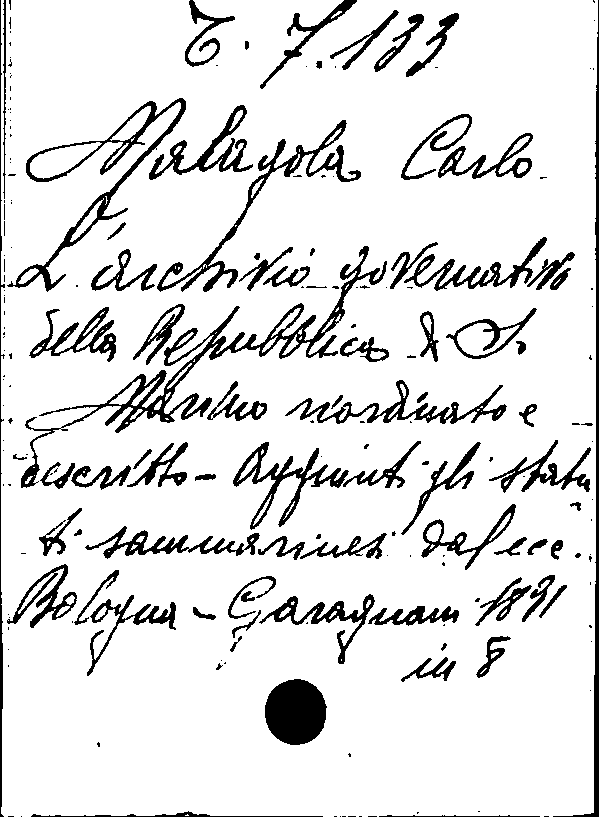 T. 7. 133
Malagola Carlo
L'archivio governativo
della Repubblica di S.
Marino riordinato e
descritto - Aggiunti gli statu
ti sammarinesi dal ecc.
Bologna - Garagnani 1891
in 8